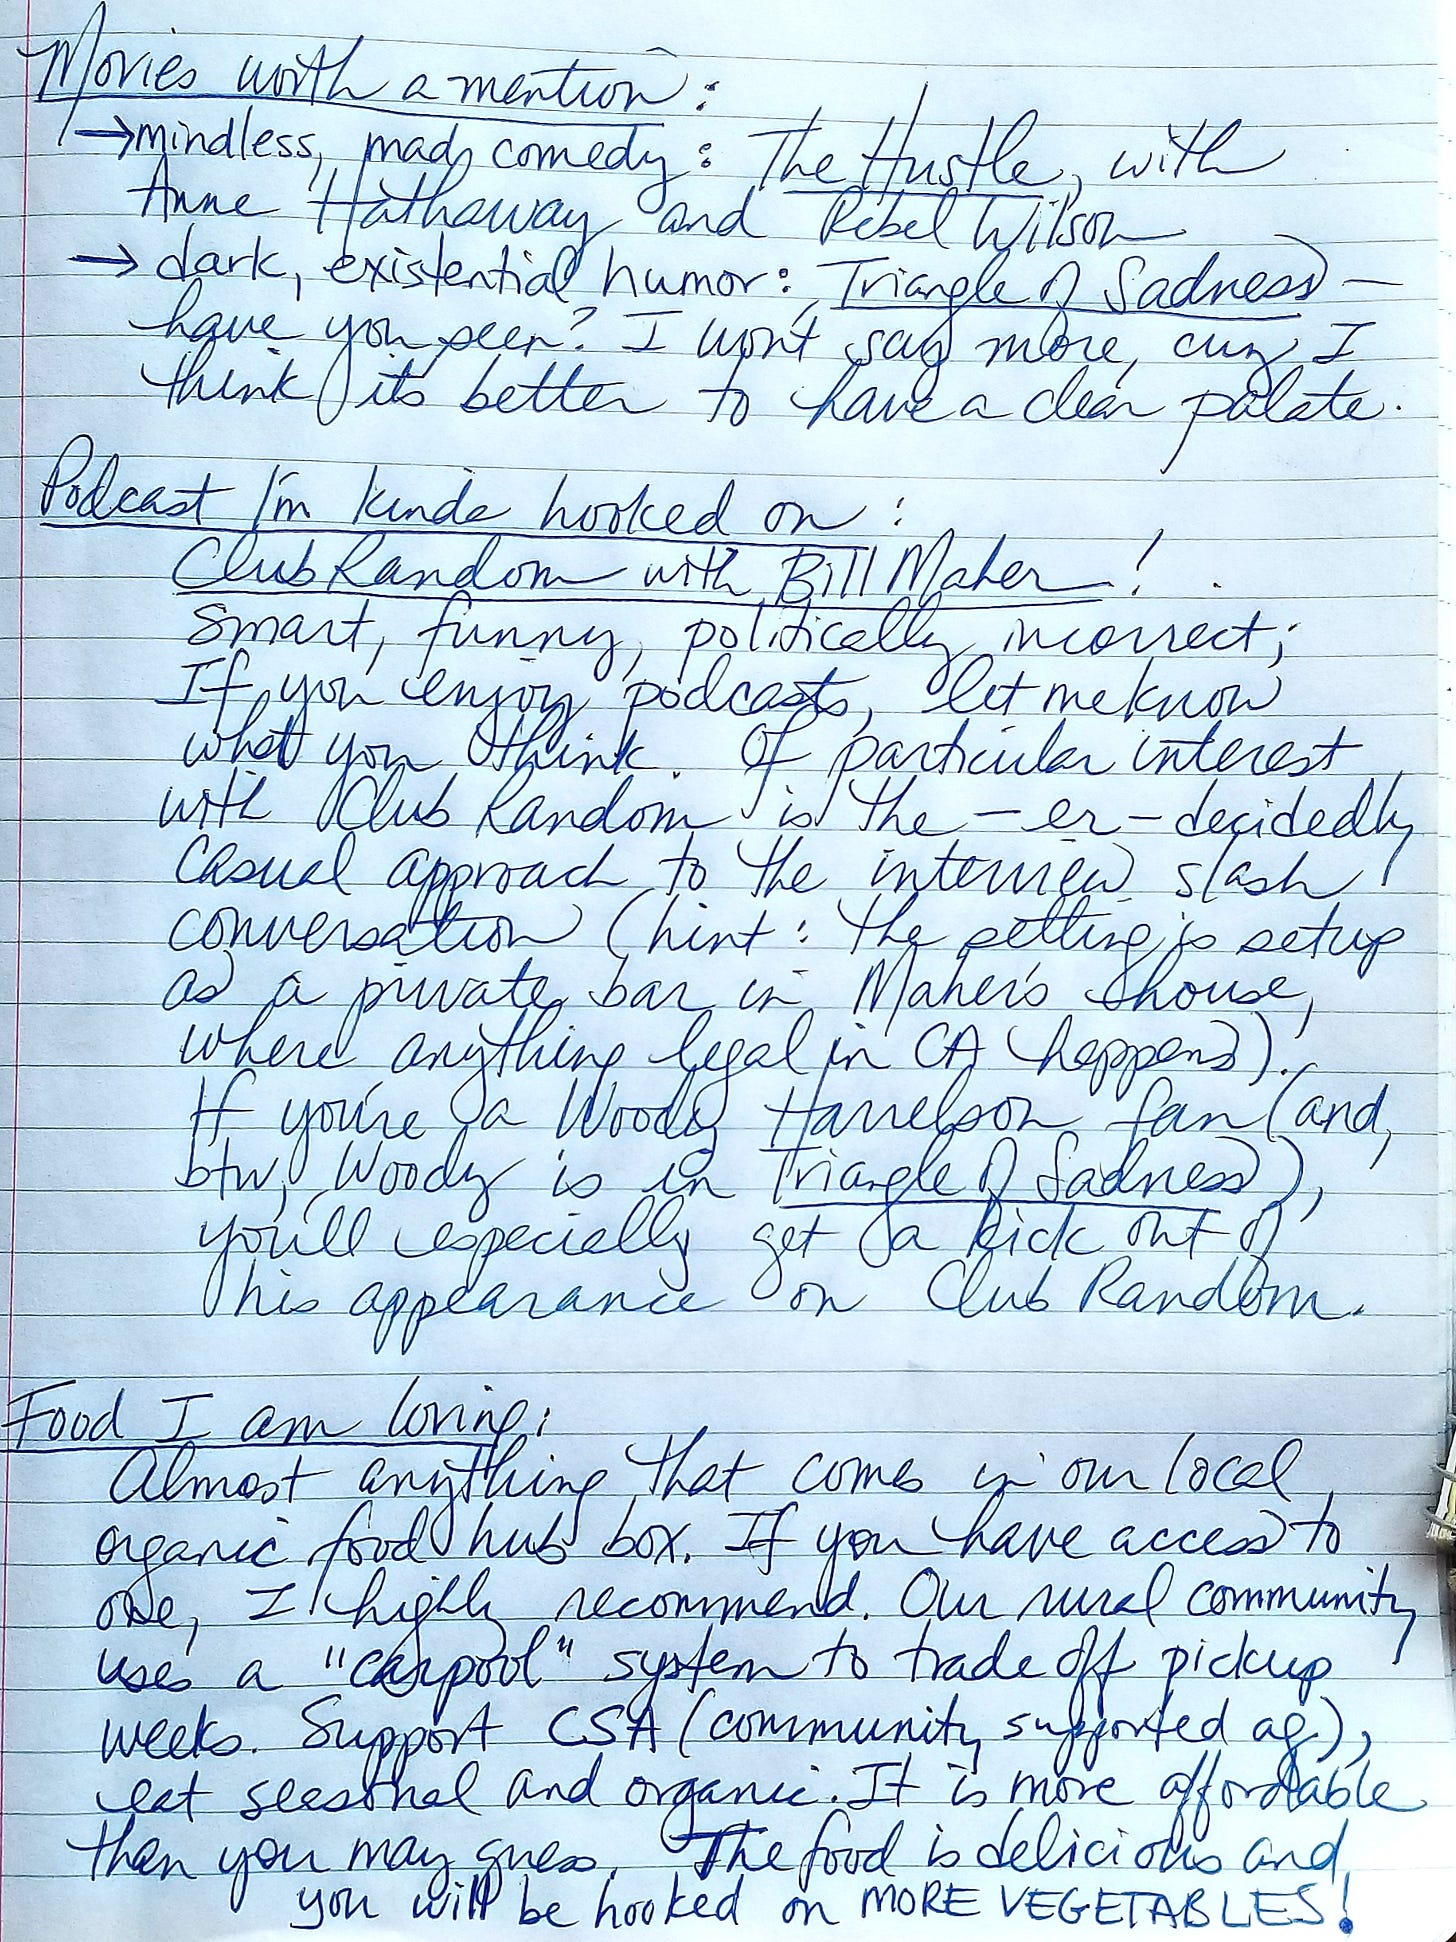 Movies worth a mention:
→ mindless, mad comedy: The Hustle, with
Anne Hathaway and Rebel Wilson
→ dark, existential humor: Triangle of Sadness —
have you seen? I won't say more, cuz I
think its better to have a clear palate.
Podcast I'm kinda hooked on:
Club Random with Bill Maher!
Smart, funny, politically incorrect;
If you enjoy podcasts, let me know
what you think. Of particular interest
with Club Random is the — er — decidedly
casual approach to the interview slash
conversation (hint: the setting is setup
as a private bar in Maher's house,
where anything legal in CA happens).
If you're a Woody Harrelson fan (and,
btw, Woody is in Triangle of Sadness),
you'll especially get a kick out of
his appearance on Club Random.
Food I am loving:
Almost anything that comes in our local
organic food hub box. If you have access to
one, I highly recommend. Our rural community
uses a "carpool" system to trade off pickup
weeks. Support CSA (community supported ag.),
eat seasonal and organic. It is more affordable
than you may guess. The food is delicious and
you will be hooked on MORE VEGETABLES!